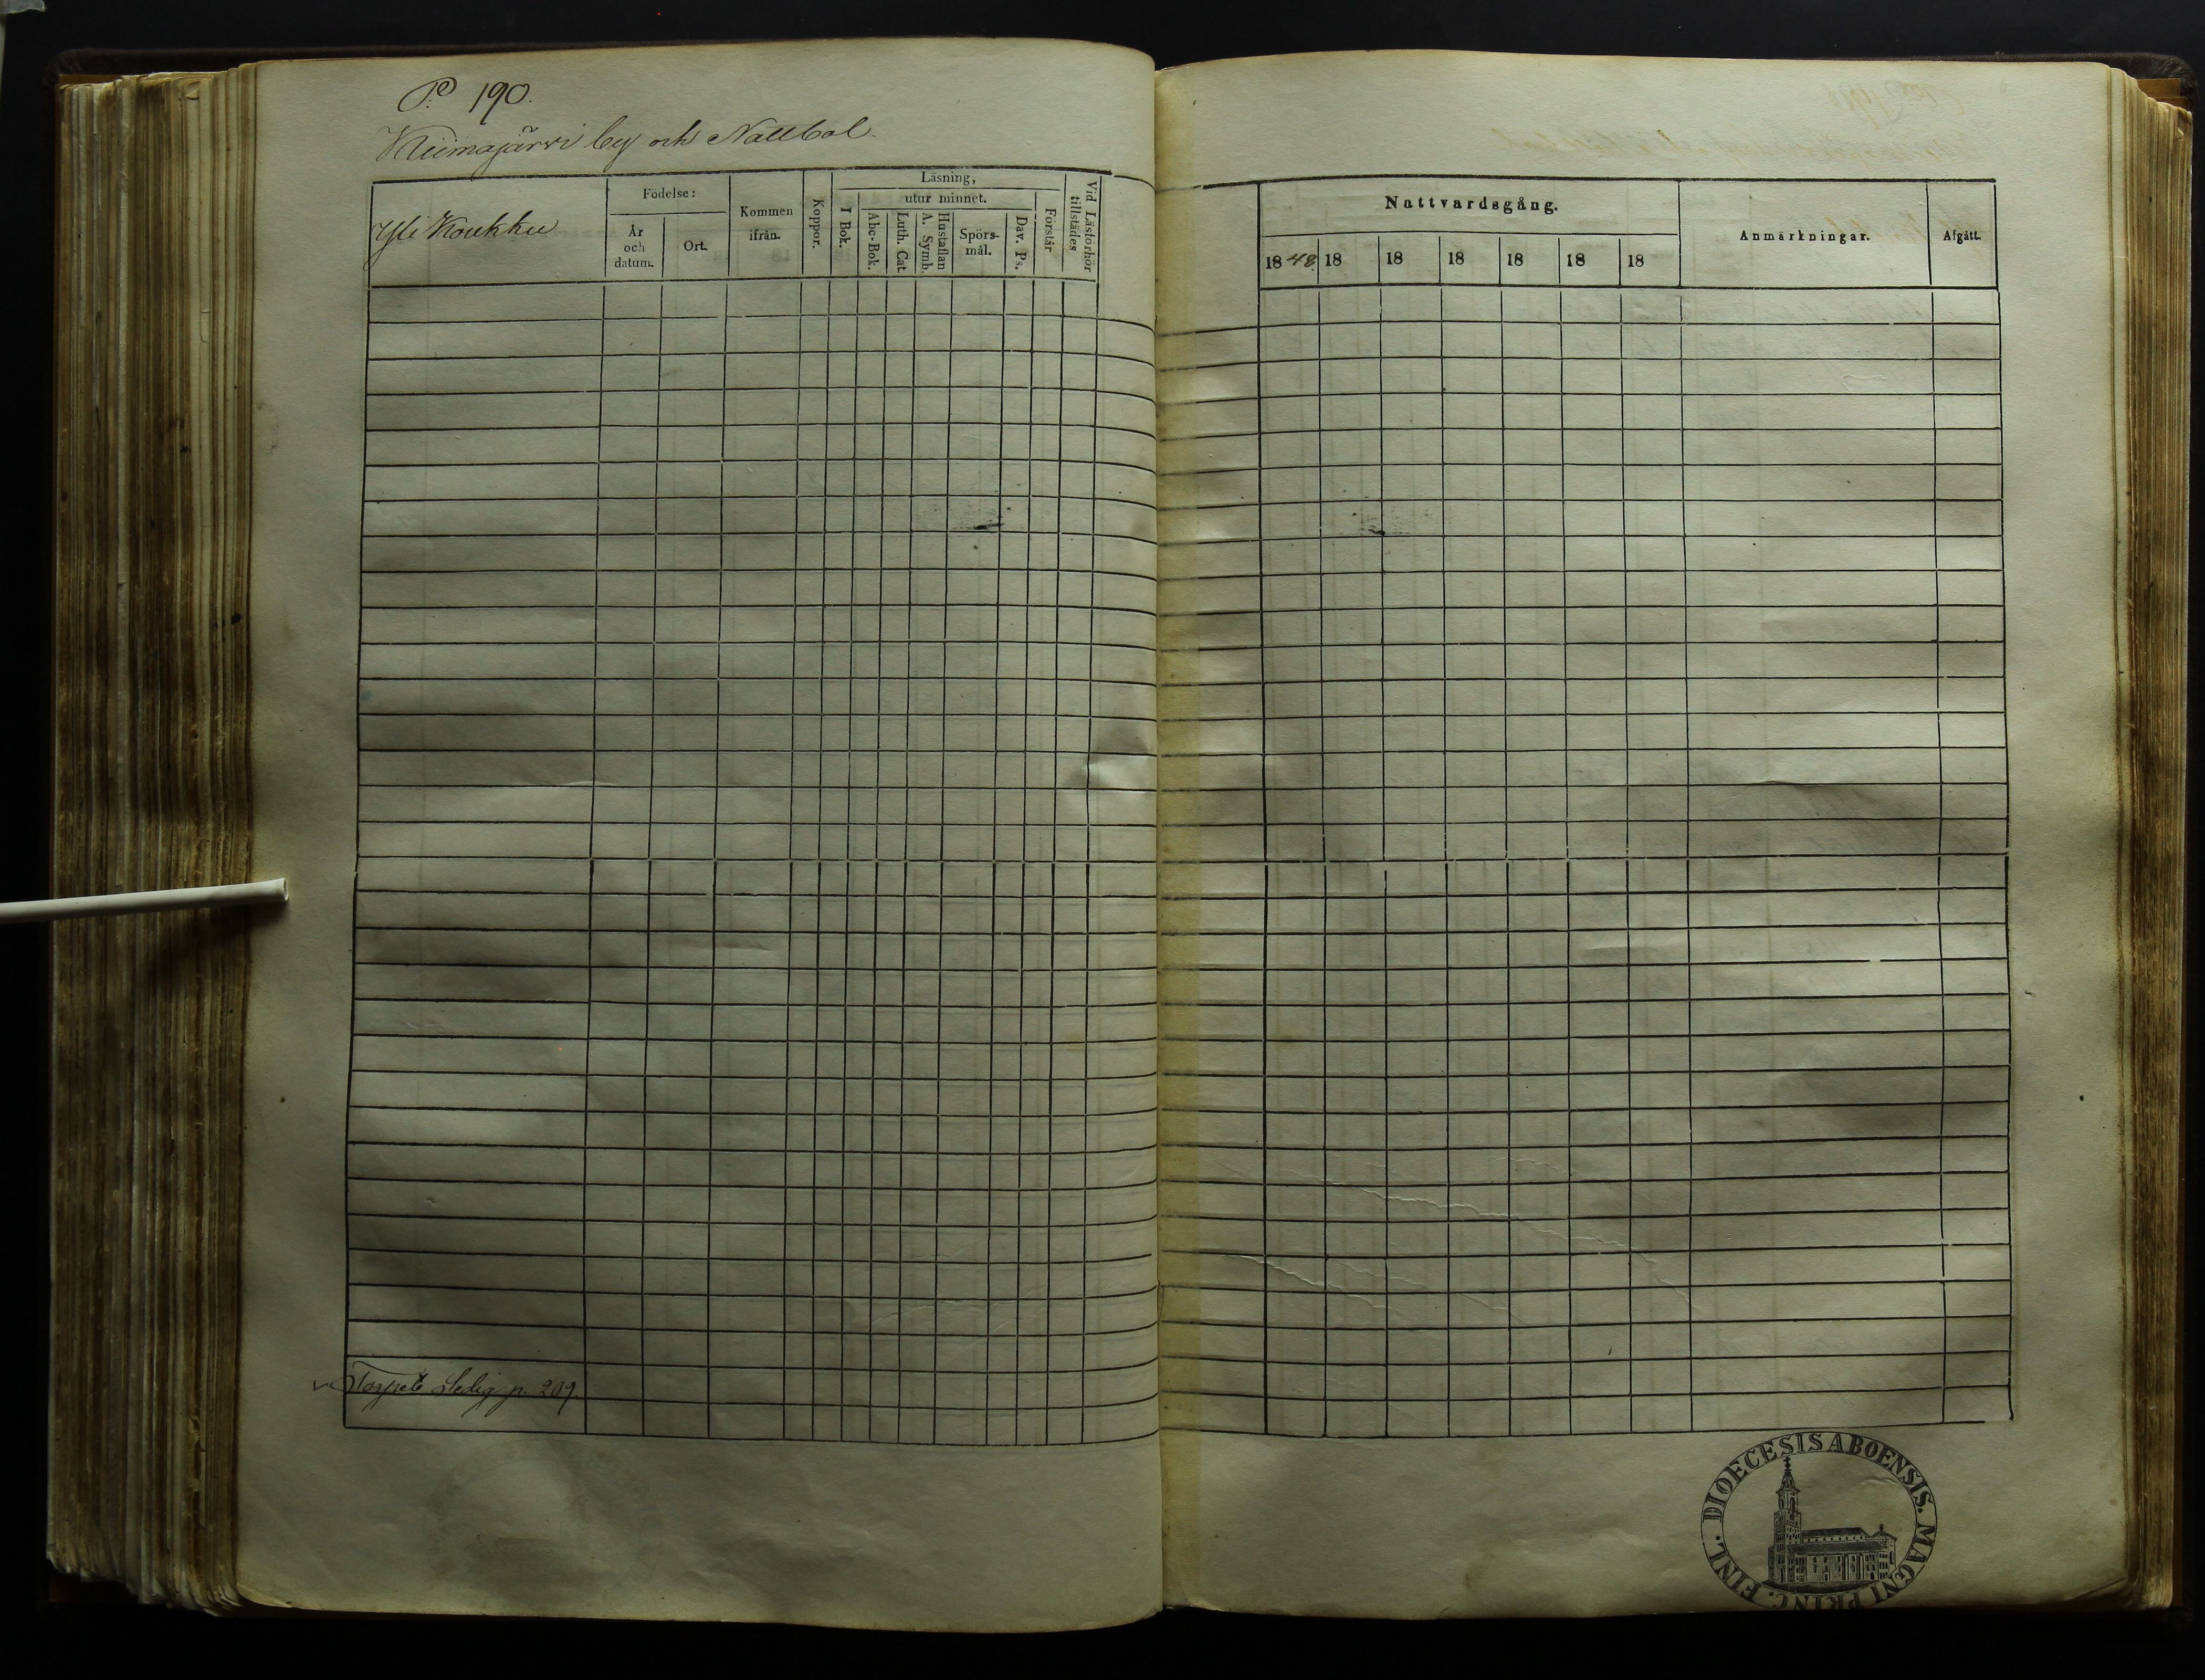 P. 190.
Kiimajärvi by och Nattbol.
Yli Koukku
Födelse:
År
och
datum.
Ort.
Kommen
ifrån.
Koppor.
Läsning,
I Bok.
utur minnet.
Abc-Bok.
Luth. Cat.
Hustaflan
A. Symb.
Spörs-
mål.
Dav. Ps.
Förstår
Vid Läsförhör
tillstädes
Torpet Ledig p. 209.
Nattvardsgång.
1848. 18 18 18 18 18 18
Anmärkningar.
Afgått.
DIOECESIS ABOENSIS. MAGNI PRINC. FINL.